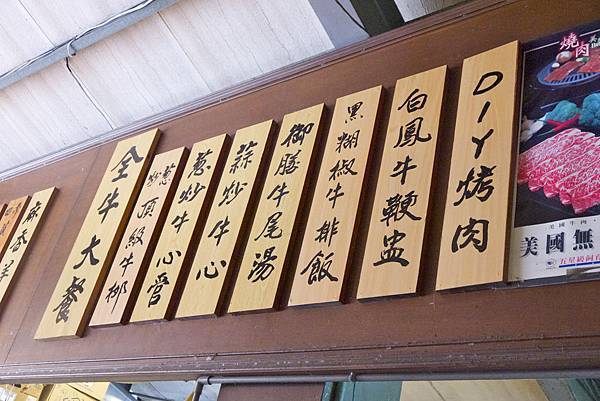 DIY烤肉
白鳳牛鞭盅
黑糊椒牛排飯
御膳牛尾湯
蒜炒牛心
蔥炒牛心管
蔥炒頂級牛柳
全牛大餐
燒肉
美國牛肉
美國無
五星級飼育